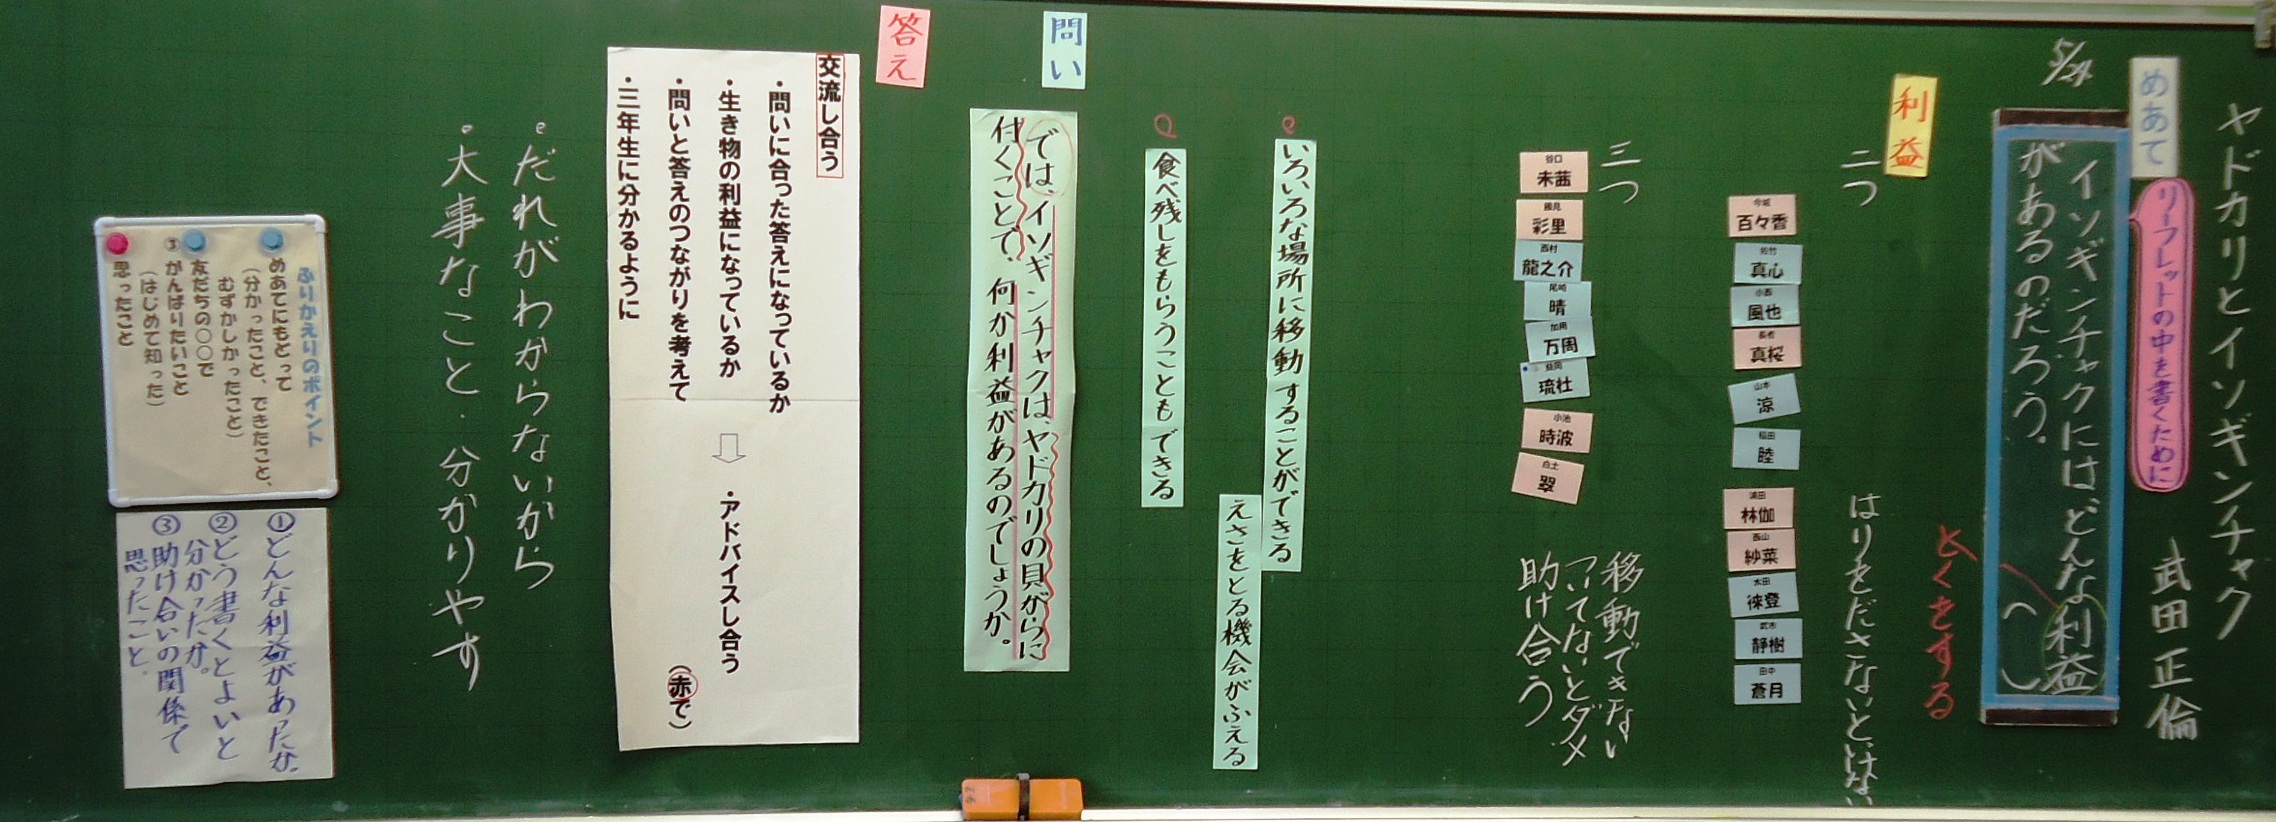 ヤドカリとイソギンチャク
武田 正倫
めあて
リーフレットの中を書くために
5/24
イソギンチャクには、どんな利益(　)
があるのだろう。
とくをする
利益
二つ
はりをださないといけない
今城 百々香
佐竹 真心
小西 風也
長者 真桜
山本 涼
稲田 睦
浦田 林伽
西山 紗菜
太田 徠登
武市 静樹
田中 蒼月
三つ
移動できない
ついてないとダメ
助け合う
谷口 未茜
彩里
西村 龍之介
尾崎 晴
万周
益岡 琉杜
小池 時波
白土 翠
いろいろな場所に移動することができる
えさをとる機会がふえる
食べ残しをもらうこともできる
問い
では、イソギンチャクは、ヤドカリの貝がらに
付くことで、何か利益があるのでしょうか。
答え
交流し合う
・問いに合った答えになっているか
・生き物の利益になっているか
⇨ ・アドバイスし合う
・問いと答えのつながりを考えて
（赤で）
・三年生に分かるように
・だれがわからないから
・大事なこと・分かりやす
ふりかえりのポイント
めあてにもどって
（分かったこと、できたこと、
むずかしかったこと）
友だちの〇〇で
③がんばりたいこと
（はじめて知った）
思ったこと
①どんな利益があったか。
②どう書くとよいと
分かったか。
③助け合いの関係で
思ったこと。